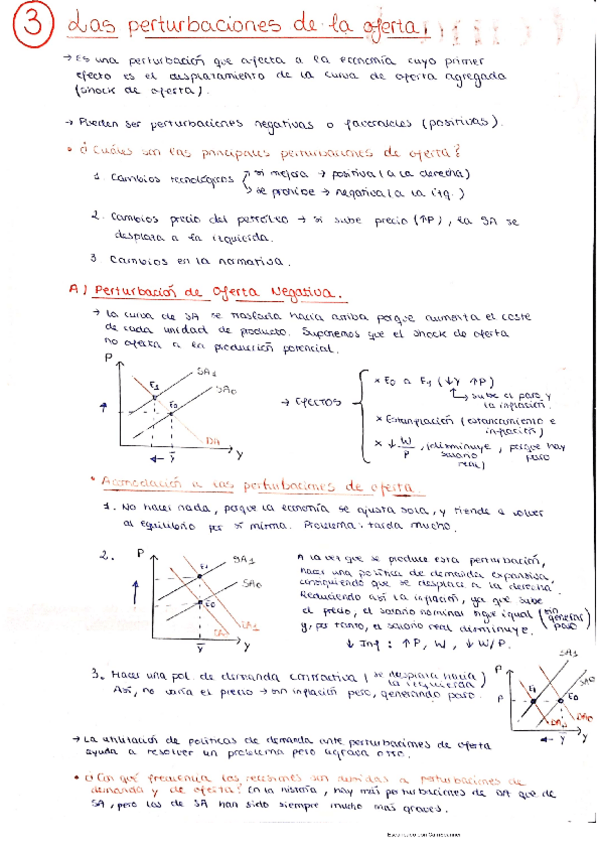 3 Las perturbaciones de la oferta.
→ Es una perturbación que afecta a la economía cuyo primer
efecto es el desplazamiento de la curva de oferta agregada
(shock de oferta).
→ Pueden ser perturbaciones negativas o favorables (positivas).
• ¿Cuáles son las principales perturbaciones de oferta?
1. Cambios tecnológicos
si mejora → positiva (a la derecha)
se prohíbe → negativa (a la izq.)
2. Cambios precio del petróleo → si sube precio (↑P), la SA se
desplaza a la izquierda.
3 Cambios en la normativa.
A) Perturbación de Oferta Negativa.
→ La curva de SA se traslada hacia arriba porque aumenta el coste
de cada unidad de producto. Suponemos que el shock de oferta
no afecta a la producción potencial.
P
SA1
SA0
E1
E0
DA
Y
Y
→ EFECTOS
× E0 a E1 (↓Y ↑P)
↳ sube el paro y
la inflación.
× Estanflación (estancamiento e
inflación)
× ↓ W/P, (disminuye, porque hay
salario paro
real)
• Acomodación a las perturbaciones de oferta
1. No hacer nada, porque la economía se ajusta sola, y tiende a volver
al equilibrio por sí misma. Problema: tarda mucho.
2.
P
SA1
SA0
E1
E0
Y
Y
A la vez que se produce esta perturbación,
hacer una política de demanda expansiva,
consiguiendo que se desplace a la derecha.
Reduciendo así la inflación, ya que sube
el precio, el salario nominal sigue igual (sin
generar
paro)
y, por tanto, el salario real disminuye.
↓ Inf : ↑P, W, ↓W/P.
3. Hacer una pol. de demanda contractiva (se desplaza hacia
la izquierda)
Así, no varía el precio → sin inflación pero, generando paro.
P
P
SA1
SA0
E1
E0
Y
Y
→ La utilización de políticas de demanda ante perturbaciones de oferta
ayuda a resolver un problema pero agrava otro.
• ¿Con qué frecuencia las recesiones son debidas a perturbaciones de
demanda y de oferta? En la historia, hay más perturbaciones de DA que de
SA, pero las de SA han sido siempre mucho más graves.
Escaneado con CamScanner